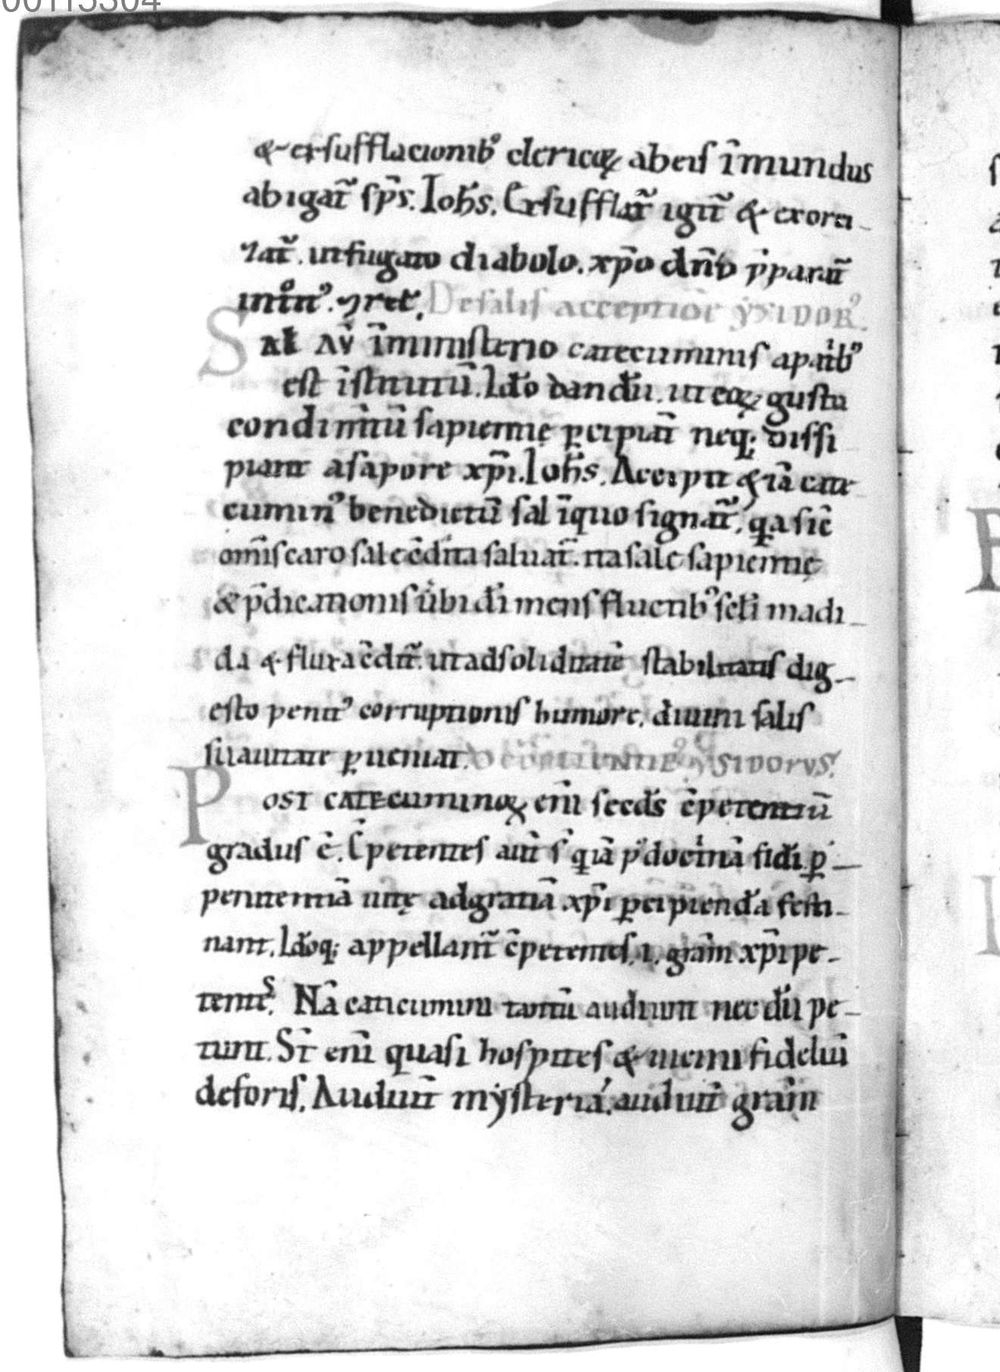 00115304
& exsufflacionib᾿ clericoꝝ abeis īmundus
abigat᷑ sp̄s. Ioh̄s. Exsufflat᷑ igit᷑ & exorci-
zat᷑. ut fugato diabolo. xp̄o dn̄o p̄parat᷑
introit᷒.
De salis acceptiōe ysidor᷒.
Sal aū īministerio catecuminis apatrib᷒
est īstitutū. Ido dandū. ut eoꝝ gustu
condimtū sapientię ꝑcipiāt neq; dissi
piant asapore xp̄i. Ioh̄s. Accipit & iā cate
cumin᷒ benedictū sal īquo signat᷑, q̄a sic
om̄is caro sale ēdita saluat᷑. ita sale sapientię
& p̄dicationis ūbi dī mens fluctib᷒ scl̄i madi-
da & fluxa ēdit᷑. ut ad soliditatē stabilitatis dig-
esto penit᷒ corruptionis humore. diuini salis
suauitate ꝑueniat.
ysidorus.
Post catecuminoꝝ eni secds ēpetentiū
gradus ē. Ēpetentes aut s̄ q̄ iā p᷒ doctnā fidi. ꝑ-
penitentiā uitę adgratiā xp̄i ꝑcipiendā festi-
nant. Idoq; appellant᷑ ēpetentes, .i. grām xp̄i pe-
tentes. Nā catecumini tantū audiunt nec dū pe-
tunt. St̄ eni quasi hospites & uicini fideliū
deforis. Audiunt mysteria, audiunt grām